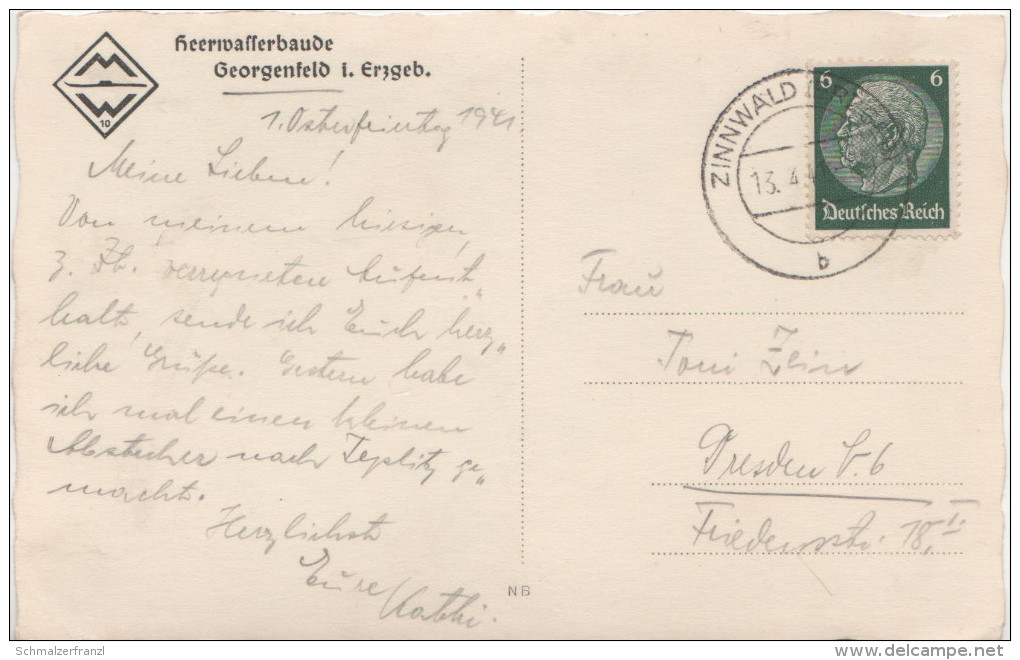 Heerwasserbaude
Georgenfeld i. Erzgeb.
MW
10
1. Osterfeiertag 1941.
Meine Lieben!
Von meinem hiesigen,
z. Zt. verregneten Aufent„
halt, sende ich Euch herz„
liche Grüße. Gestern habe
ich mal einen kleinen
Abstecher nach Teplitz ge„
macht.
Herzlichst
Eure Kathi.
6 6
Deutsches Reich
ZINNWALD
13. 4. 4
b
Frau
Toni
Dresden
Friedensstr. 18, I.
NB
Schmalzerfranzl
delcampe.net